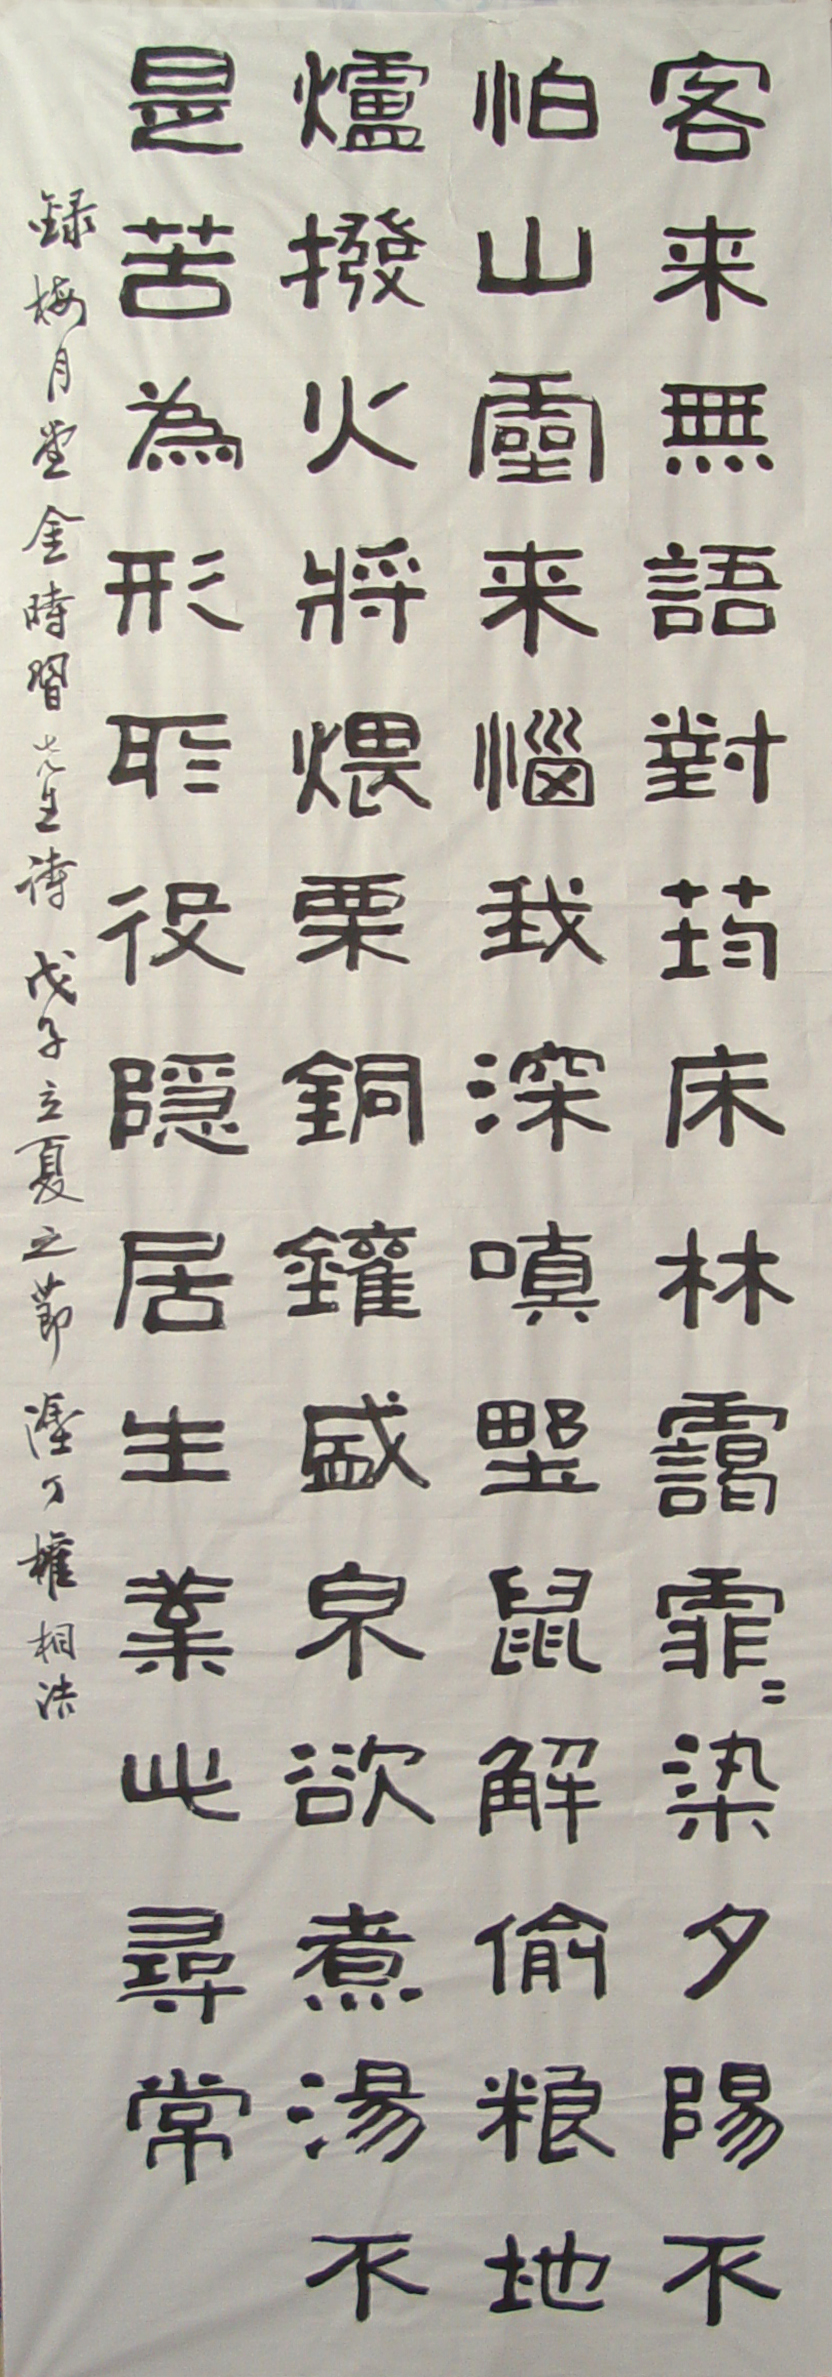 客来無語對筠床林靄霏〻染夕陽不
怕山靈来惱我深嗔野鼠解偷粮地
爐撥火將煨栗銅鑵盛泉欲煮湯不
是苦為形所役隱居生業此尋常
録梅月堂金時習先生詩 戊子立夏之節 權相浩